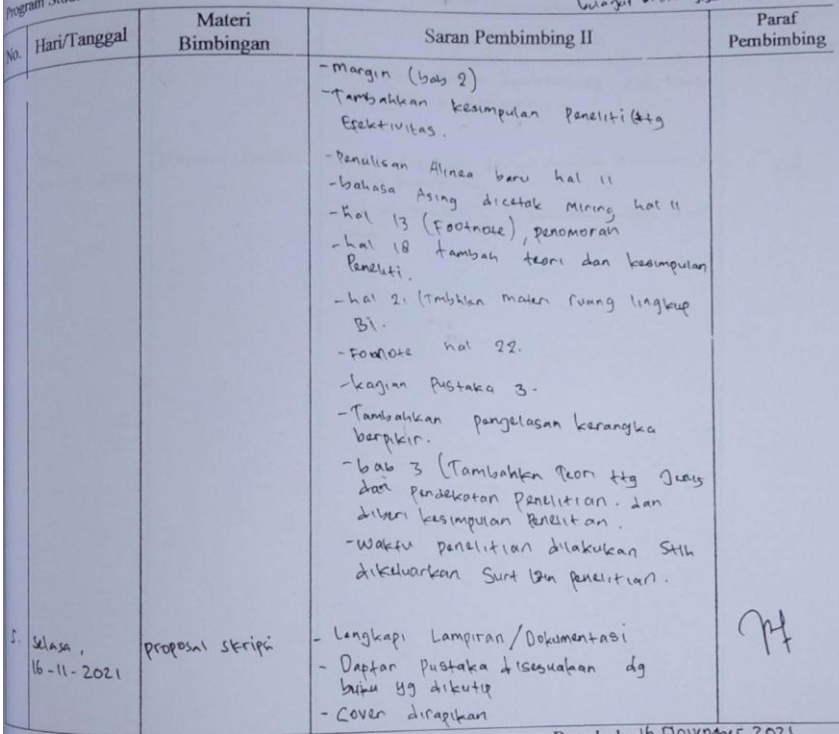 Program
No. Hari/Tanggal Materi Bimbingan Saran Pembimbing II Paraf Pembimbing
- Margin (bab 2)
- Tambahkan kesimpulan Peneliti (ttg
Efektivitas.
- Penulisan Alinea baru hal 11
- bahasa Asing dicetak Miring hal 11
- hal 13 (Footnote), penomoran
- hal 18 tambah teori dan kesimpulan
Peneliti.
- hal 21 (Tmbhkan materi ruang lingkup
BI.
- Footnote hal 22.
- kagian Pustaka 3.
- Tambahkan pengelasan kerangka
berpikir.
- bab 3 (Tambahkn Teori ttg Jenis
dan pendekatan Penelitian. dan
diberi kesimpulan Penelitan.
- Waktu penelitian dilakukan Stlh
dikeluarkan Surt Izin penelitian.
5. Selasa, 16-11-2021
proposal skripsi
- Lengkapi Lampiran/Dokumentasi
- Daptar Pustaka disesuaikan dg
buku yg dikutip
- Cover dirapikan
16 November 2021